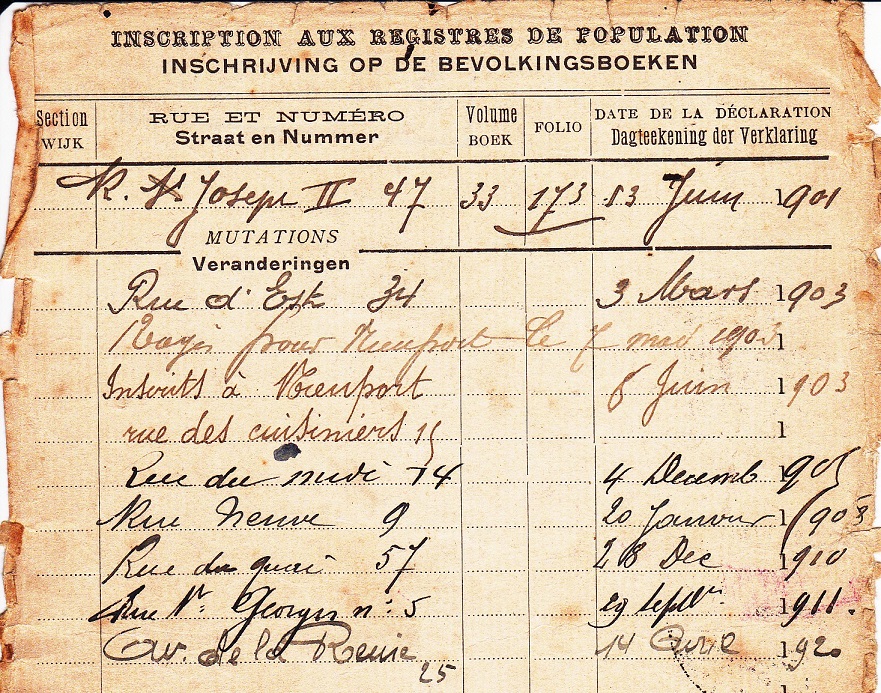 INSCRIPTION AUX REGISTRES DE POPULATION
INSCHRIJVING OP DE BEVOLKINGSBOEKEN
Section WIJK RUE ET NUMÉRO Straat en Nummer Volume BOEK FOLIO DATE DE LA DÉCLARATION Dagteekening der Verklaring
R. Joseph II 47 33 173 13 Juin 1901
MUTATIONS
Veranderingen
Rue d'Est 34 3 Mars 1903
Rayé pour Nieuport le 7 mai 1903 1
Inscrits à Nieuport 6 Juin 1903
rue des cuisiniers 15 1
Rue du midi 14 4 Decemb 1905
Rue Neuve 9 20 Janvier 1908
Rue du quai 57 28 Dec 1910
Rue St Georges n: 5 29 Septbr. 1911.
Av. de la Reine 14 Avril 1920
25
1